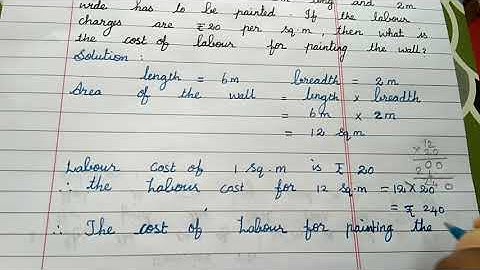 and 2m
wide has to be painted. If the labour
charges are ₹20 per sq.m, then what is
the cost of labour for painting the wall?
Solution:
length = 6m breadth = 2m
Area of the wall = length × breadth
= 6m × 2m
= 12 sqm
Labour cost of 1 sq.m is ₹ 20
∴ the Labour cost for 12 sq.m = 12×20
= ₹ 240
12
× 20
00
24
240
∴ The cost of Labour for painting the